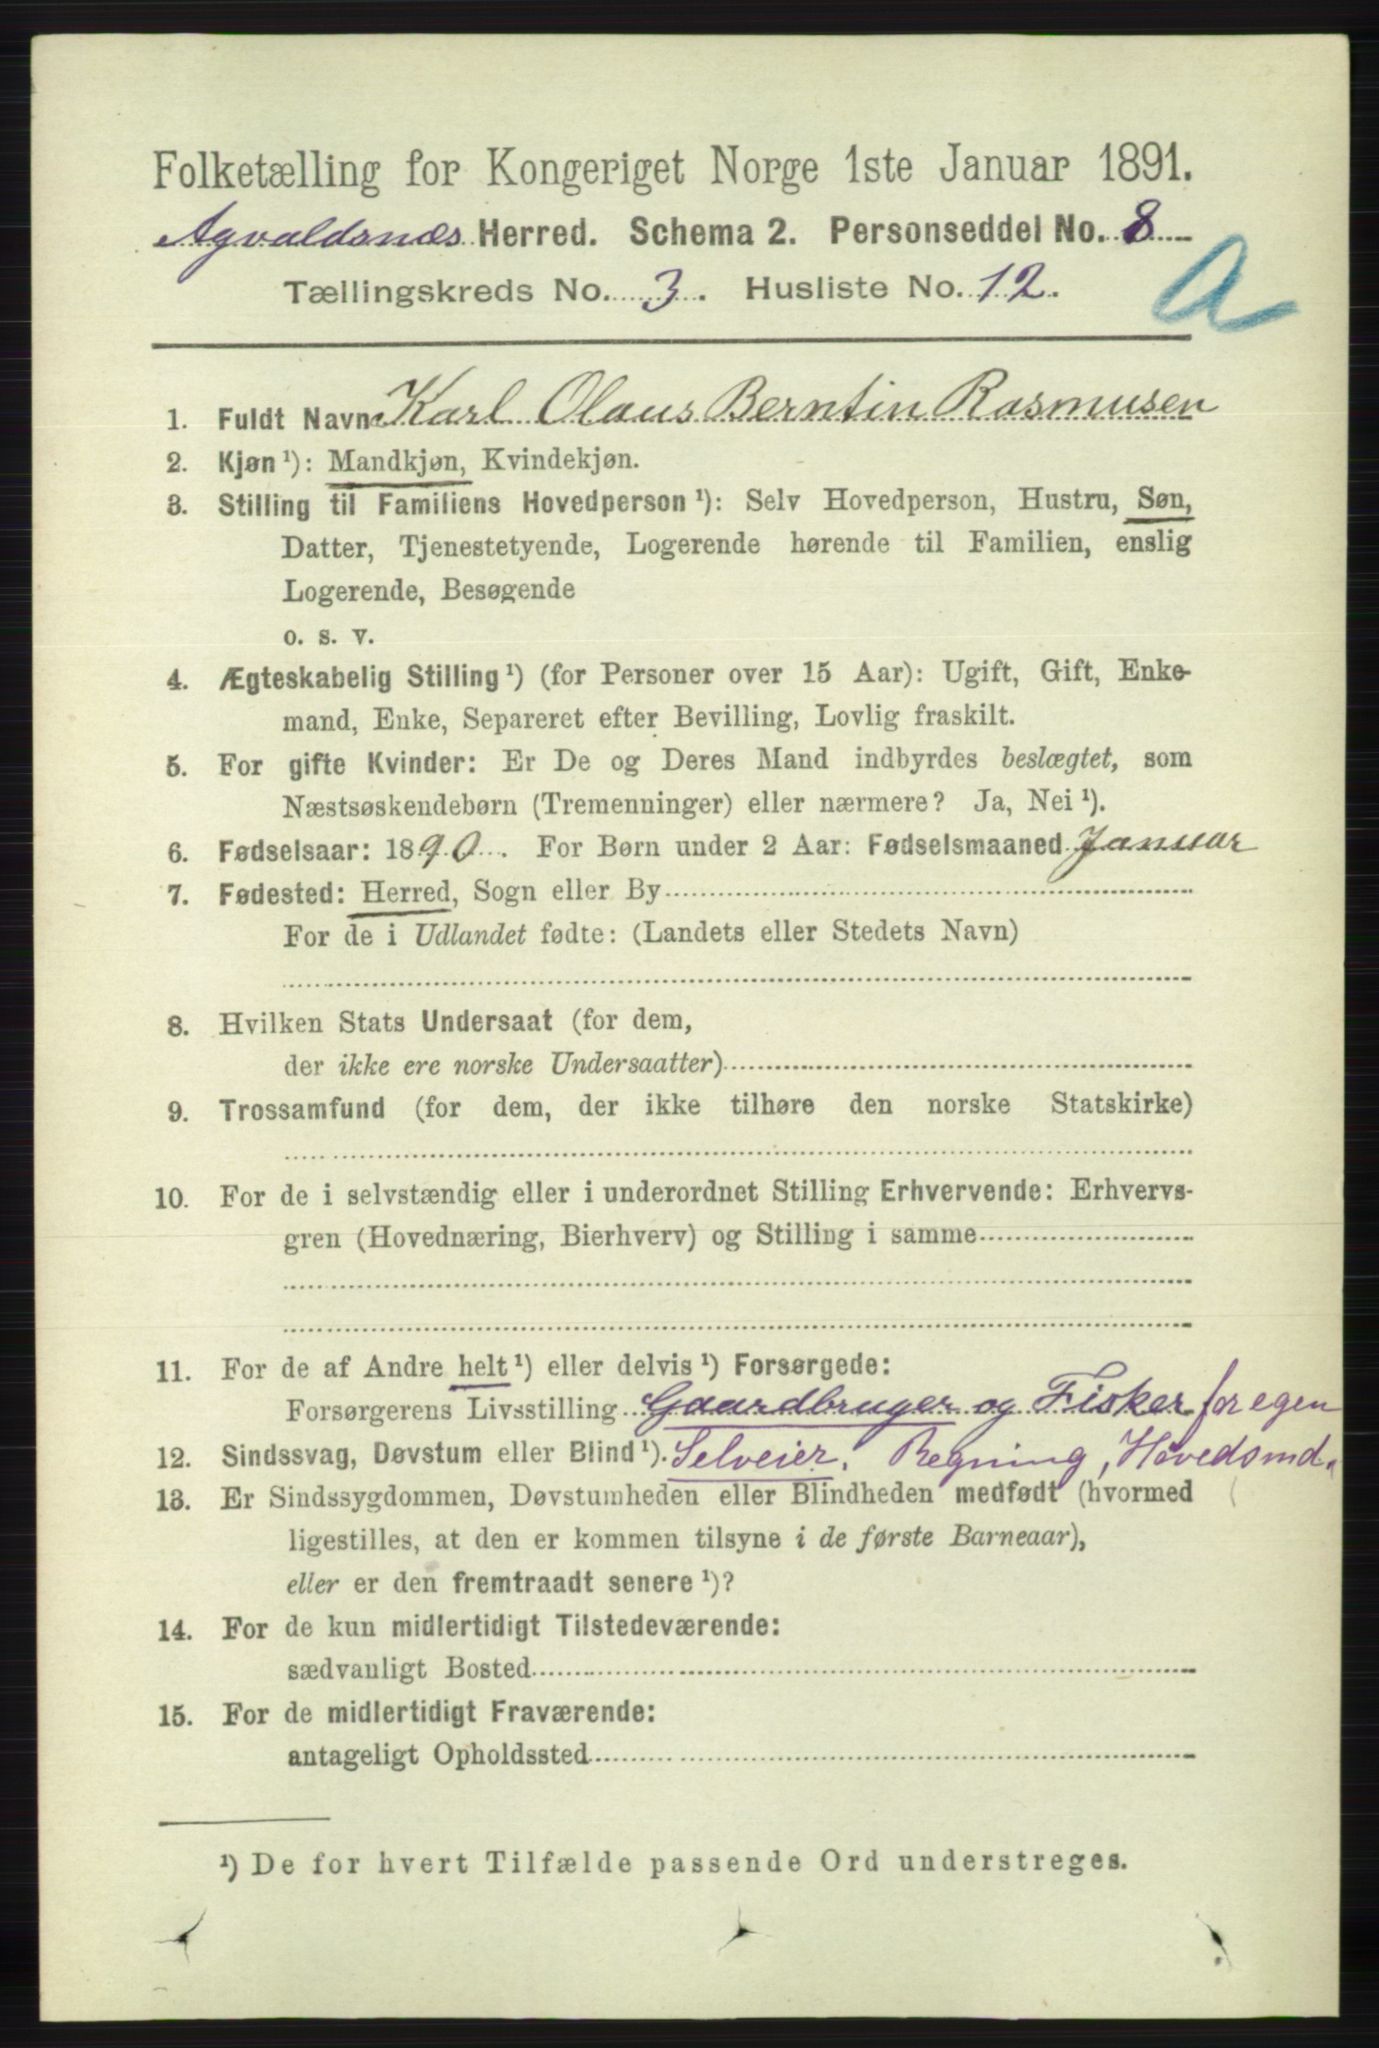 Folketælling for Kongeriget Norge 1ste Januar 1891.
Agvaldsnæs Herred. Schema 2. Personseddel No. 8
Tællingskreds No. 3. Husliste No. 12.
A
1. Fuldt Navn Karl Olaus Berntin Rasmusen
2. Kjøn ¹): Mandkjøn, Kvindekjøn.
3. Stilling til Familiens Hovedperson ¹): Selv Hovedperson, Hustru, Søn,
Datter, Tjenestetyende, Logerende hørende til Familien, enslig
Logerende, Besøgende
o. s. v.
4. Ægteskabelig Stilling ¹) (for Personer over 15 Aar): Ugift, Gift, Enke-
mand, Enke, Separeret efter Bevilling, Lovlig fraskilt.
5. For gifte Kvinder: Er De og Deres Mand indbyrdes beslægtet, som
Næstsøskendebørn (Tremenninger) eller nærmere? Ja, Nei ¹).
6. Fødselsaar: 1890. For Børn under 2 Aar: Fødselsmaaned Januar
7. Fødested: Herred, Sogn eller By
For de i Udlandet fødte: (Landets eller Stedets Navn)
8. Hvilken Stats Undersaat (for dem,
der ikke ere norske Undersaatter)
9. Trossamfund (for dem, der ikke tilhøre den norske Statskirke)
10. For de i selvstændig eller i underordnet Stilling Erhvervende: Erhvervs-
gren (Hovednæring, Bierhverv) og Stilling i samme
11. For de af Andre helt ¹) eller delvis ¹) Forsørgede:
Forsørgerens Livsstilling Gaardbruger og Fisker for egen
12. Sindssvag, Døvstum eller Blind ¹). Selveier. Regning, Hovedsmd.
13. Er Sindssygdommen, Døvstumheden eller Blindheden medfødt (hvormed
ligestilles, at den er kommen tilsyne i de første Barneaar),
eller er den fremtraadt senere ¹)?
14. For de kun midlertidigt Tilstedeværende:
sædvanligt Bosted
15. For de midlertidigt Fraværende:
antageligt Opholdssted
¹) De for hvert Tilfælde passende Ord understreges.